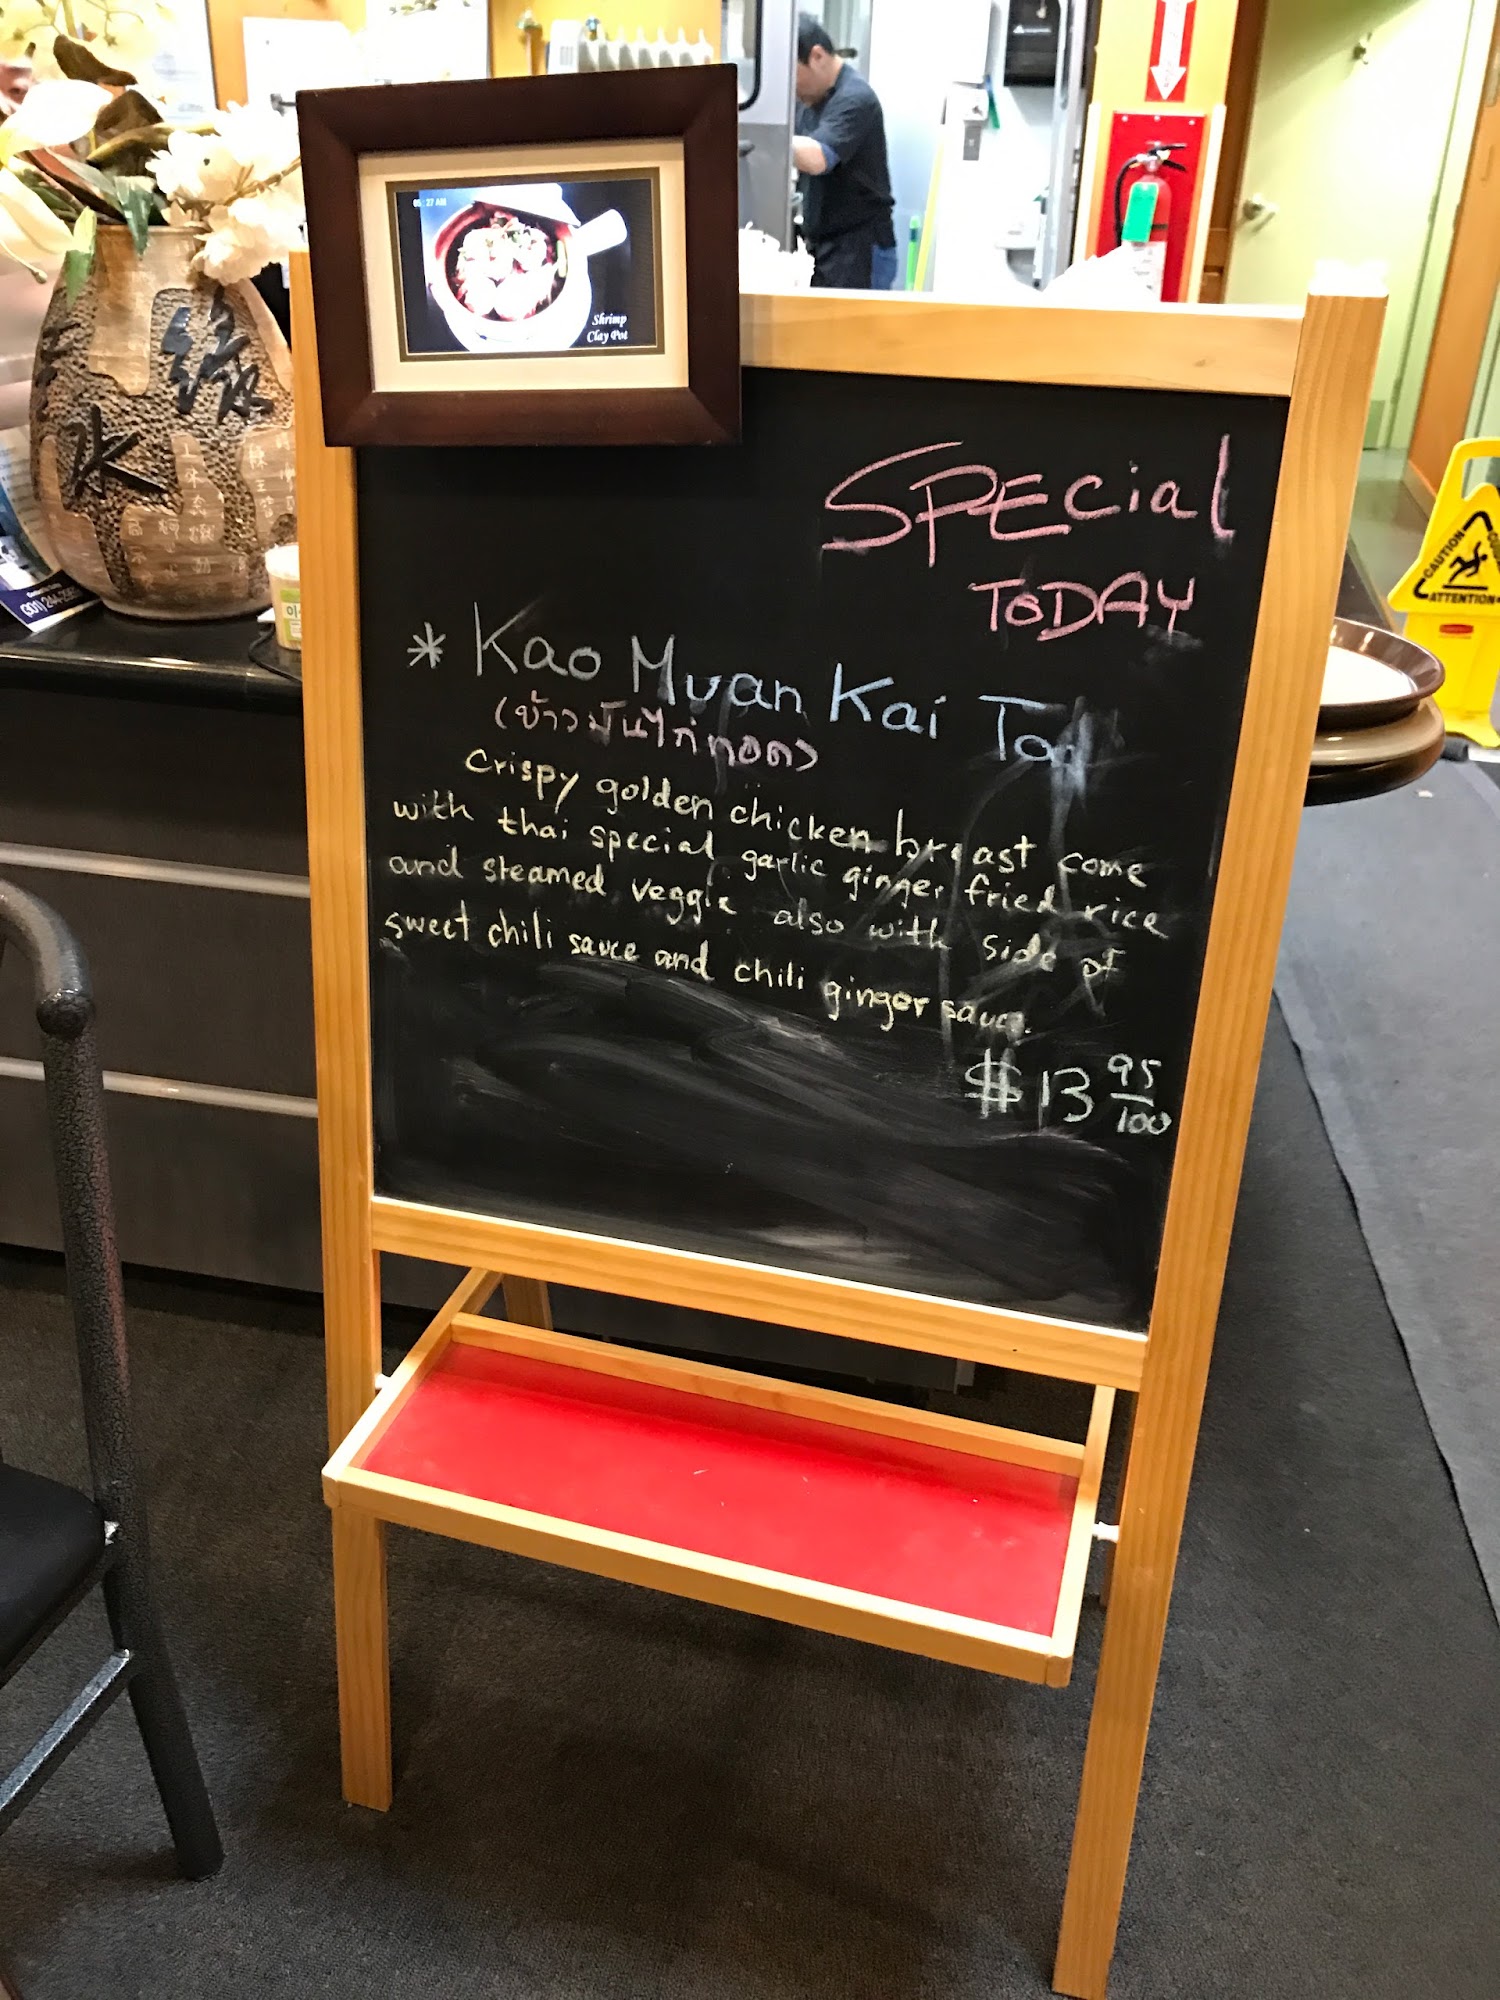 05:27 AM
Shrimp
Clay Pot
SPEcial
ToDAY
* Kao Muan Kai Tod
(ข้าวมันไก่ทอด)
Crispy golden chicken breast come
with thai special garlic ginger fried rice
and steamed veggie also with side of
sweet chili sauce and chili ginger sauce.
$13 95/100
緣
水
CAUTION
ATTENTION